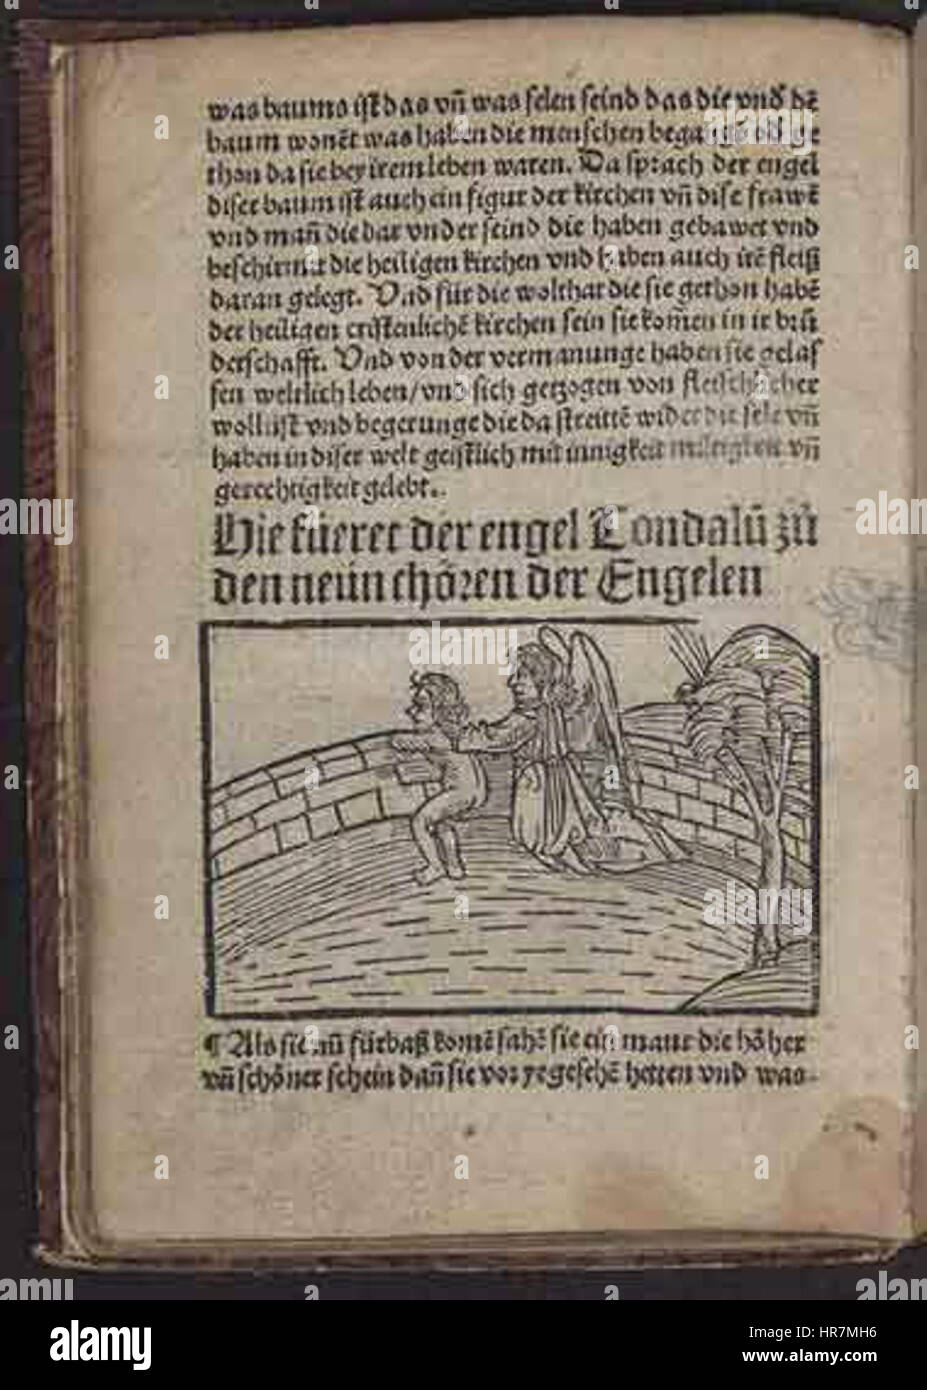 was baums ist das vñ was selen seind das die vnd dẽ
baum wonẽt was haben die menschen begangẽ od ge
thon da sie bey irem leben waren. Da sprach der engel
diser baum ist auch ein figur der kirchen vñ dise frawẽ
vnd mañ die dar vnder seind die haben gebawet vnd
beschirmit die heiligen kirchen vnd haben auch irẽ fleiß
daran gelegt. Vnd für die wolthat die sie gethon habẽ
der heiligen cristenlichẽ kirchen sein sie kom̃en in ir brü
derschafft. Vnd von der vermanunge haben sie gelas
sen weltlich leben/vnd sich gezogen von fleischlicher
wollust vnd begerunge die da streittẽ wider die sele vñ
haben in diser welt geistlich mit innigkeit miltigkeit vñ
gerechtigkeit gelebt.
Hie füeret der engel Tondalũ zů
den neün chören der Engelen
¶ Als sie nũ fürbaß komẽ sahẽ sie ein maur die hõher
vñ schõner schein dañ sie vor ye gesehẽ hetten vnd was
alamy
HR7MH6
www.alamy.com